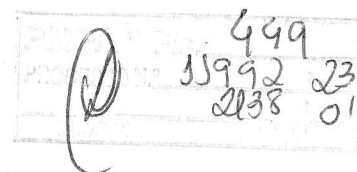 449
11992 23
2138 01